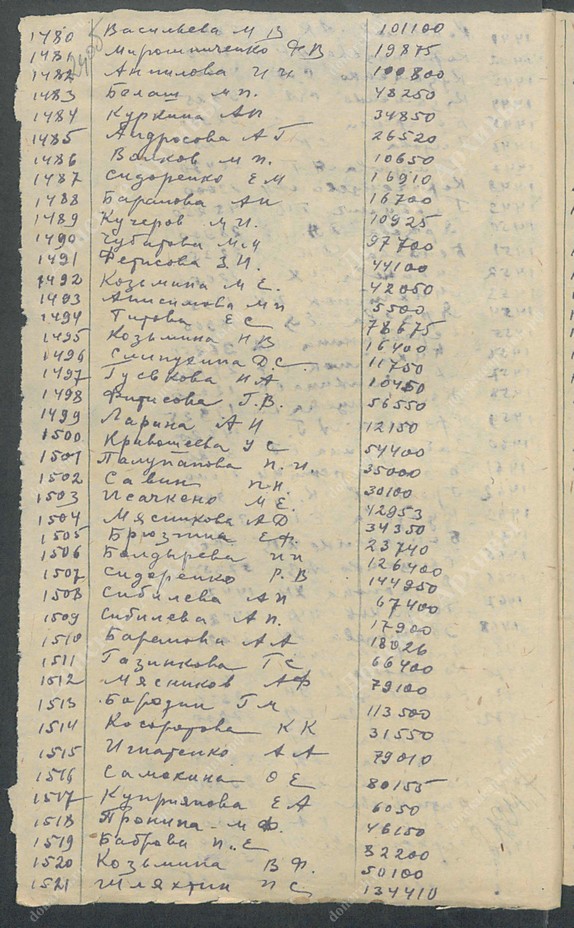 1480 Васильева М В 101100
1481 Мирошниченко Н В 19875
1482 Анпилова И И 199800
1483 Белаш М П. 48250
1484 Куркина А П 34850
1485 Андросова А Г 26520
1486 Волков М П. 10650
1487 Сидоренко Е М 16910
1488 Баранова А И 16700
1489 Кучеров М И. 10925
1490 М И 97700
1491 Фетисова З И. 44100
1492 Козьмина М Е. 42050
1493 Анисимова М П 5500
1494 Титова Е С 78675
1495 Козьмина Н В 16400
1496 Д. С. 11750
1497 Гуськова Н А 10450
1498 Фитисова Г. В. 56550
1499 Ларина А И 12150
1500 Кривошеева У С 54400
1501 Палупанова П. И. 35000
1502 Савин П Н. 30100
1503 Исачкено М Е. 42953
1504 Мясникова А Д 34350
1505 Брюзгина Е Ф. 23740
1506 Болдырева И И 126400
1507 Сидоренко Р. В 144950
1508 Сибилева А П 67400
1509 Сибилева А П. 17900
1510 А А 18026
1511 Газинкова Г С 66400
1512 Мясников А Ф 79100
1513 Бородин Г М 113500
1514 К К 31550
1515 Игнатенко А А 79010
1516 Самохина О Е 80155
1517 Куприянова Е А 6050
1518 Пронина М Ф. 46150
1519 Баброва П. Е 32200
1520 Козьмина В Ф. 50100
1521 Шляхтин П С 134410